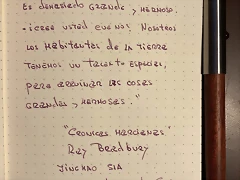 Es demasiado grande y hermoso.
¿cree usted eso? Nosotros
los habitantes de la tierra
tenemos un talento especial
para arruinar las cosas
grandes y hermosas."
"Cronicas Marcianas"
Ray Bradbury
JINCHAO SIA